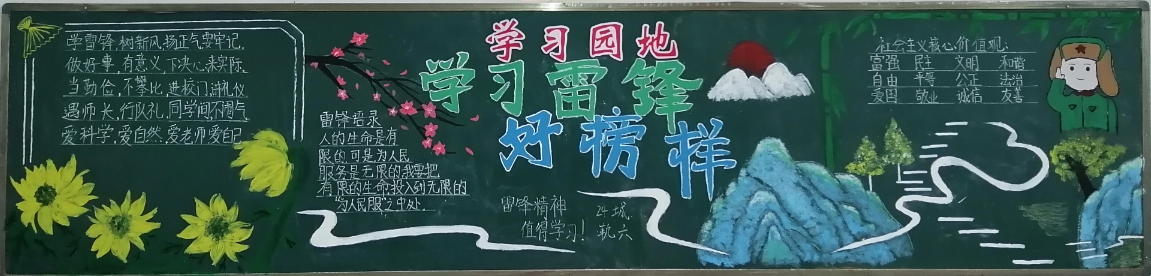 学雷锋,树新风,扬正气要牢记,
做好事,有意义,下决心,来实际,
当勤俭,不攀比,进校门,讲礼仪
遇师长,行队礼,同学间,不撒气
爱科学,爱自然,爱老师爱自己
雷锋语录
人的生命是有
限的,可是为人民
服务是无限的,我要把
有限的生命投入到无限的
"为人民服"之中处.
学习园地
学习雷锋
好榜样
雷锋精神
值得学习!
24城
轨六
社会主义核心价值观:
富强 民主 文明 和谐
自由 平等 公正 法治
爱国 敬业 诚信 友善